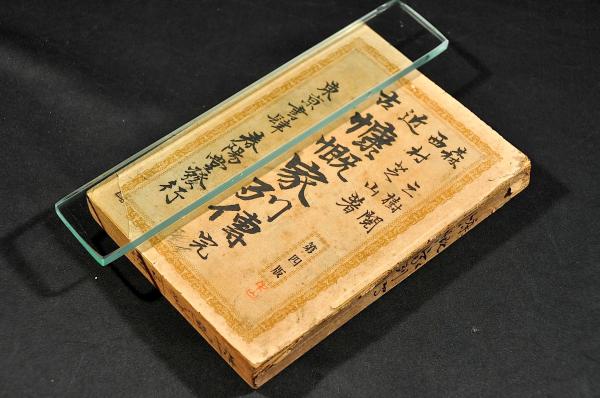 森三樹閲
西村芝山著
近古
慷慨家列傳 完
第四版
東京書肆
春陽堂發行